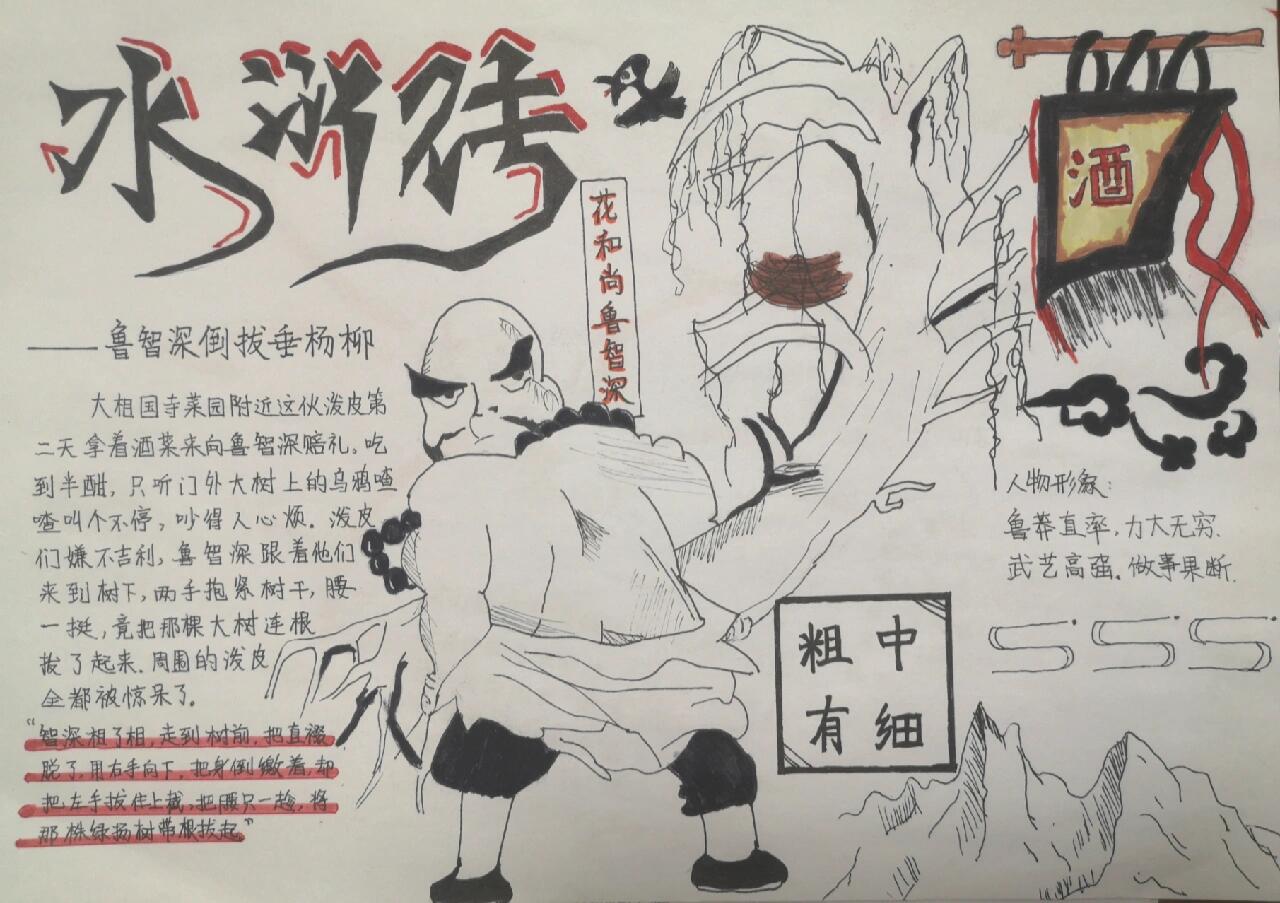 水浒传
花和尚鲁智深
酒
——鲁智深倒拔垂杨柳
大相国寺菜园附近这伙泼皮第
二天拿着酒菜来向鲁智深赔礼。吃
到半酣，只听门外大树上的乌鸦喳
喳叫个不停，吵得人心烦。泼皮
们嫌不吉利，鲁智深跟着他们
来到树下，两手抱紧树干，腰
一挺，竟把那棵大树连根
拔了起来.周围的泼皮
全都被惊呆了。
“智深相了相，走到树前，把直裰
脱了，用右手向下，把身倒缴着，却
把左手拔住上截，把腰只一趁，将
那株绿扬树带根拔起。”
人物形象：
鲁莽直率，力大无穷.
武艺高强.做事果断.
粗中
有细